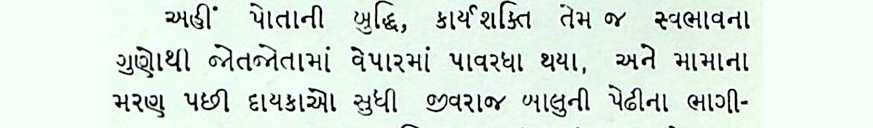 અહીં પોતાની બુદ્ધિ, કાર્યશક્તિ તેમ જ સ્વભાવના
ગુણોથી જોતજોતામાં વેપારમાં પાવરધા થયા, અને મામાના
મરણ પછી દાયકાઓ સુધી જીવરાજ બાલુની પેઢીના ભાગી-